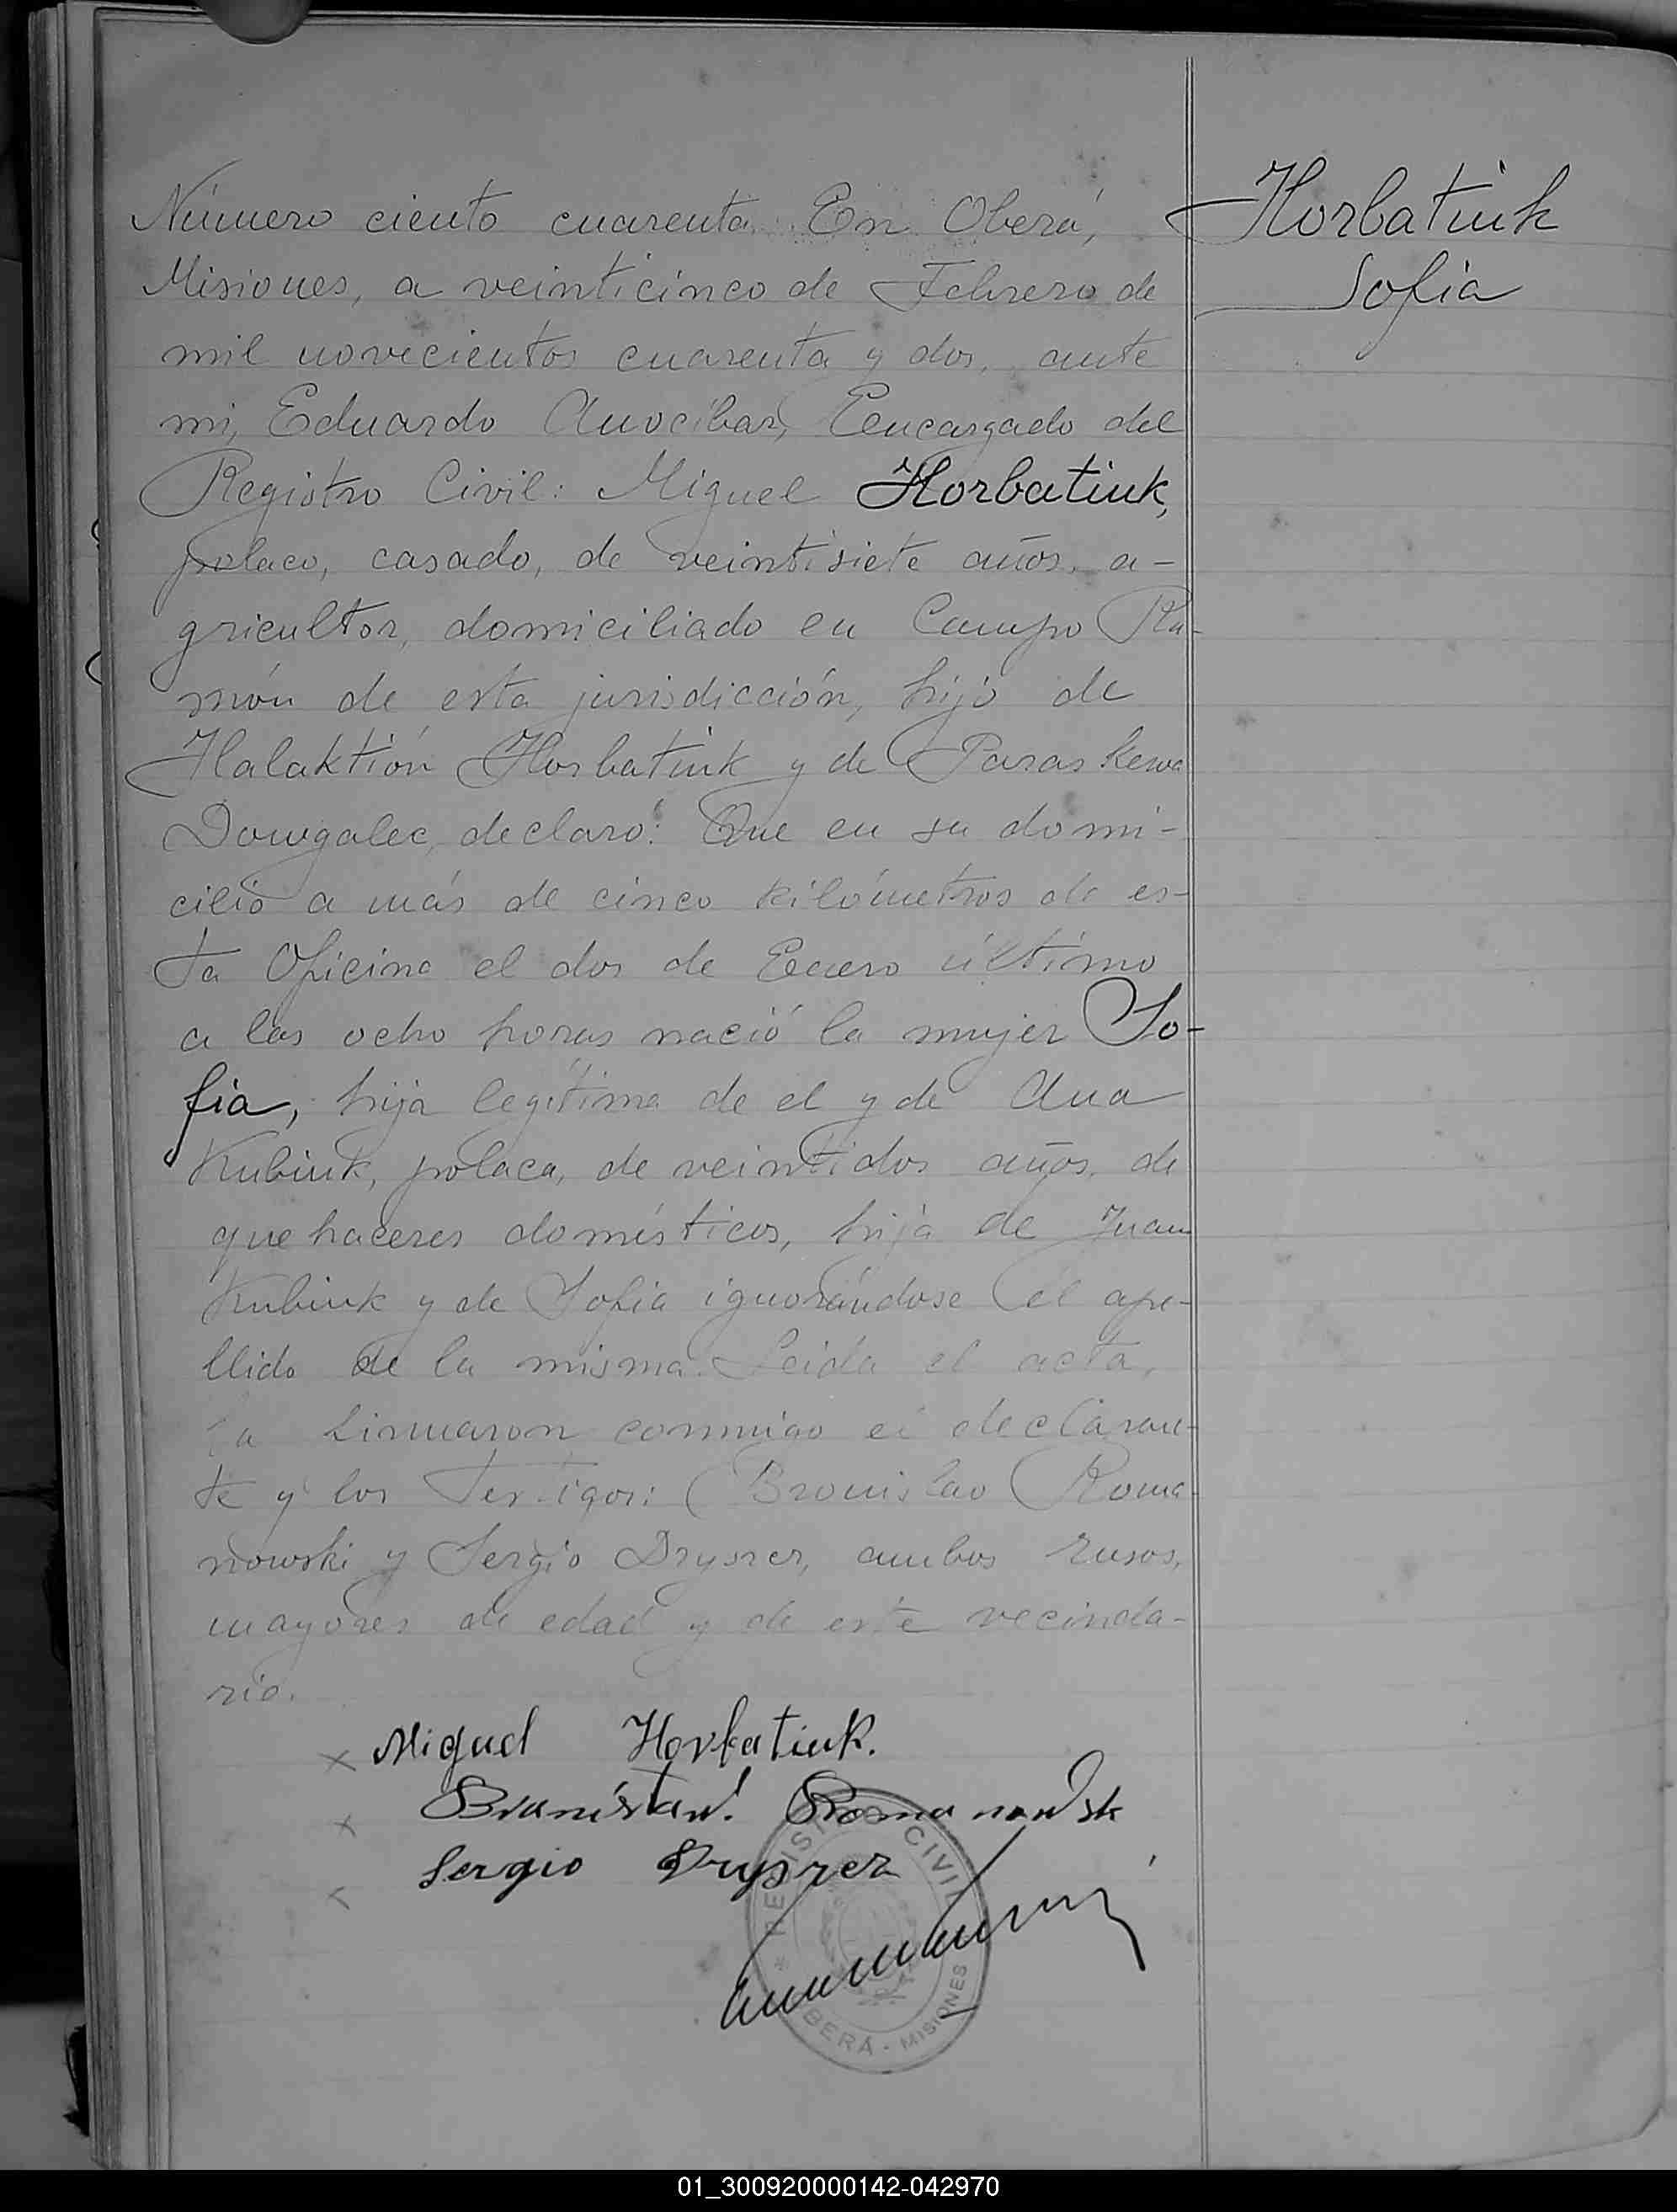 Número ciento cuarenta. En Oberá,
Misiones, a veinticinco de Febrero de
mil novecientos cuarenta y dos, ante
mi, Eduardo Anocíbar, Encargado del
Registro Civil: Miguel Horbatiuk,
polaco, casado, de veintisiete años, a-
gricultor, domiciliado en Campo Ra-
món de esta jurisdicción, hijo de
Halaktión Horbatiuk y de Paraskewa
Dowgalec, declaró: Que en su domi-
cilio a más de cinco kilómetros de es-
ta Oficina el dos de Enero último
a las ocho horas nació la mujer So-
fia, hija legítima de el y de Ana
Kubiuk, polaca, de veintidos años, de
que haceres domésticos, hija de Juan
Kubiuk y de Sofia ignorándose el ape-
llido de la misma. Leida el acta,
la firmaron conmigo el declaran-
te y los testigos: Bronislao Roma-
nowski y Sergio Dryszez, ambos rusos,
mayores de edad y de este vecinda-
rio.
Horbatiuk
Sofia
x Miguel Horbatiuk.
x Bronisław Romanowsk
x Sergio Dryszez
REGISTRO CIVIL
OBERÁ - MISIONES
01_300920000142-042970